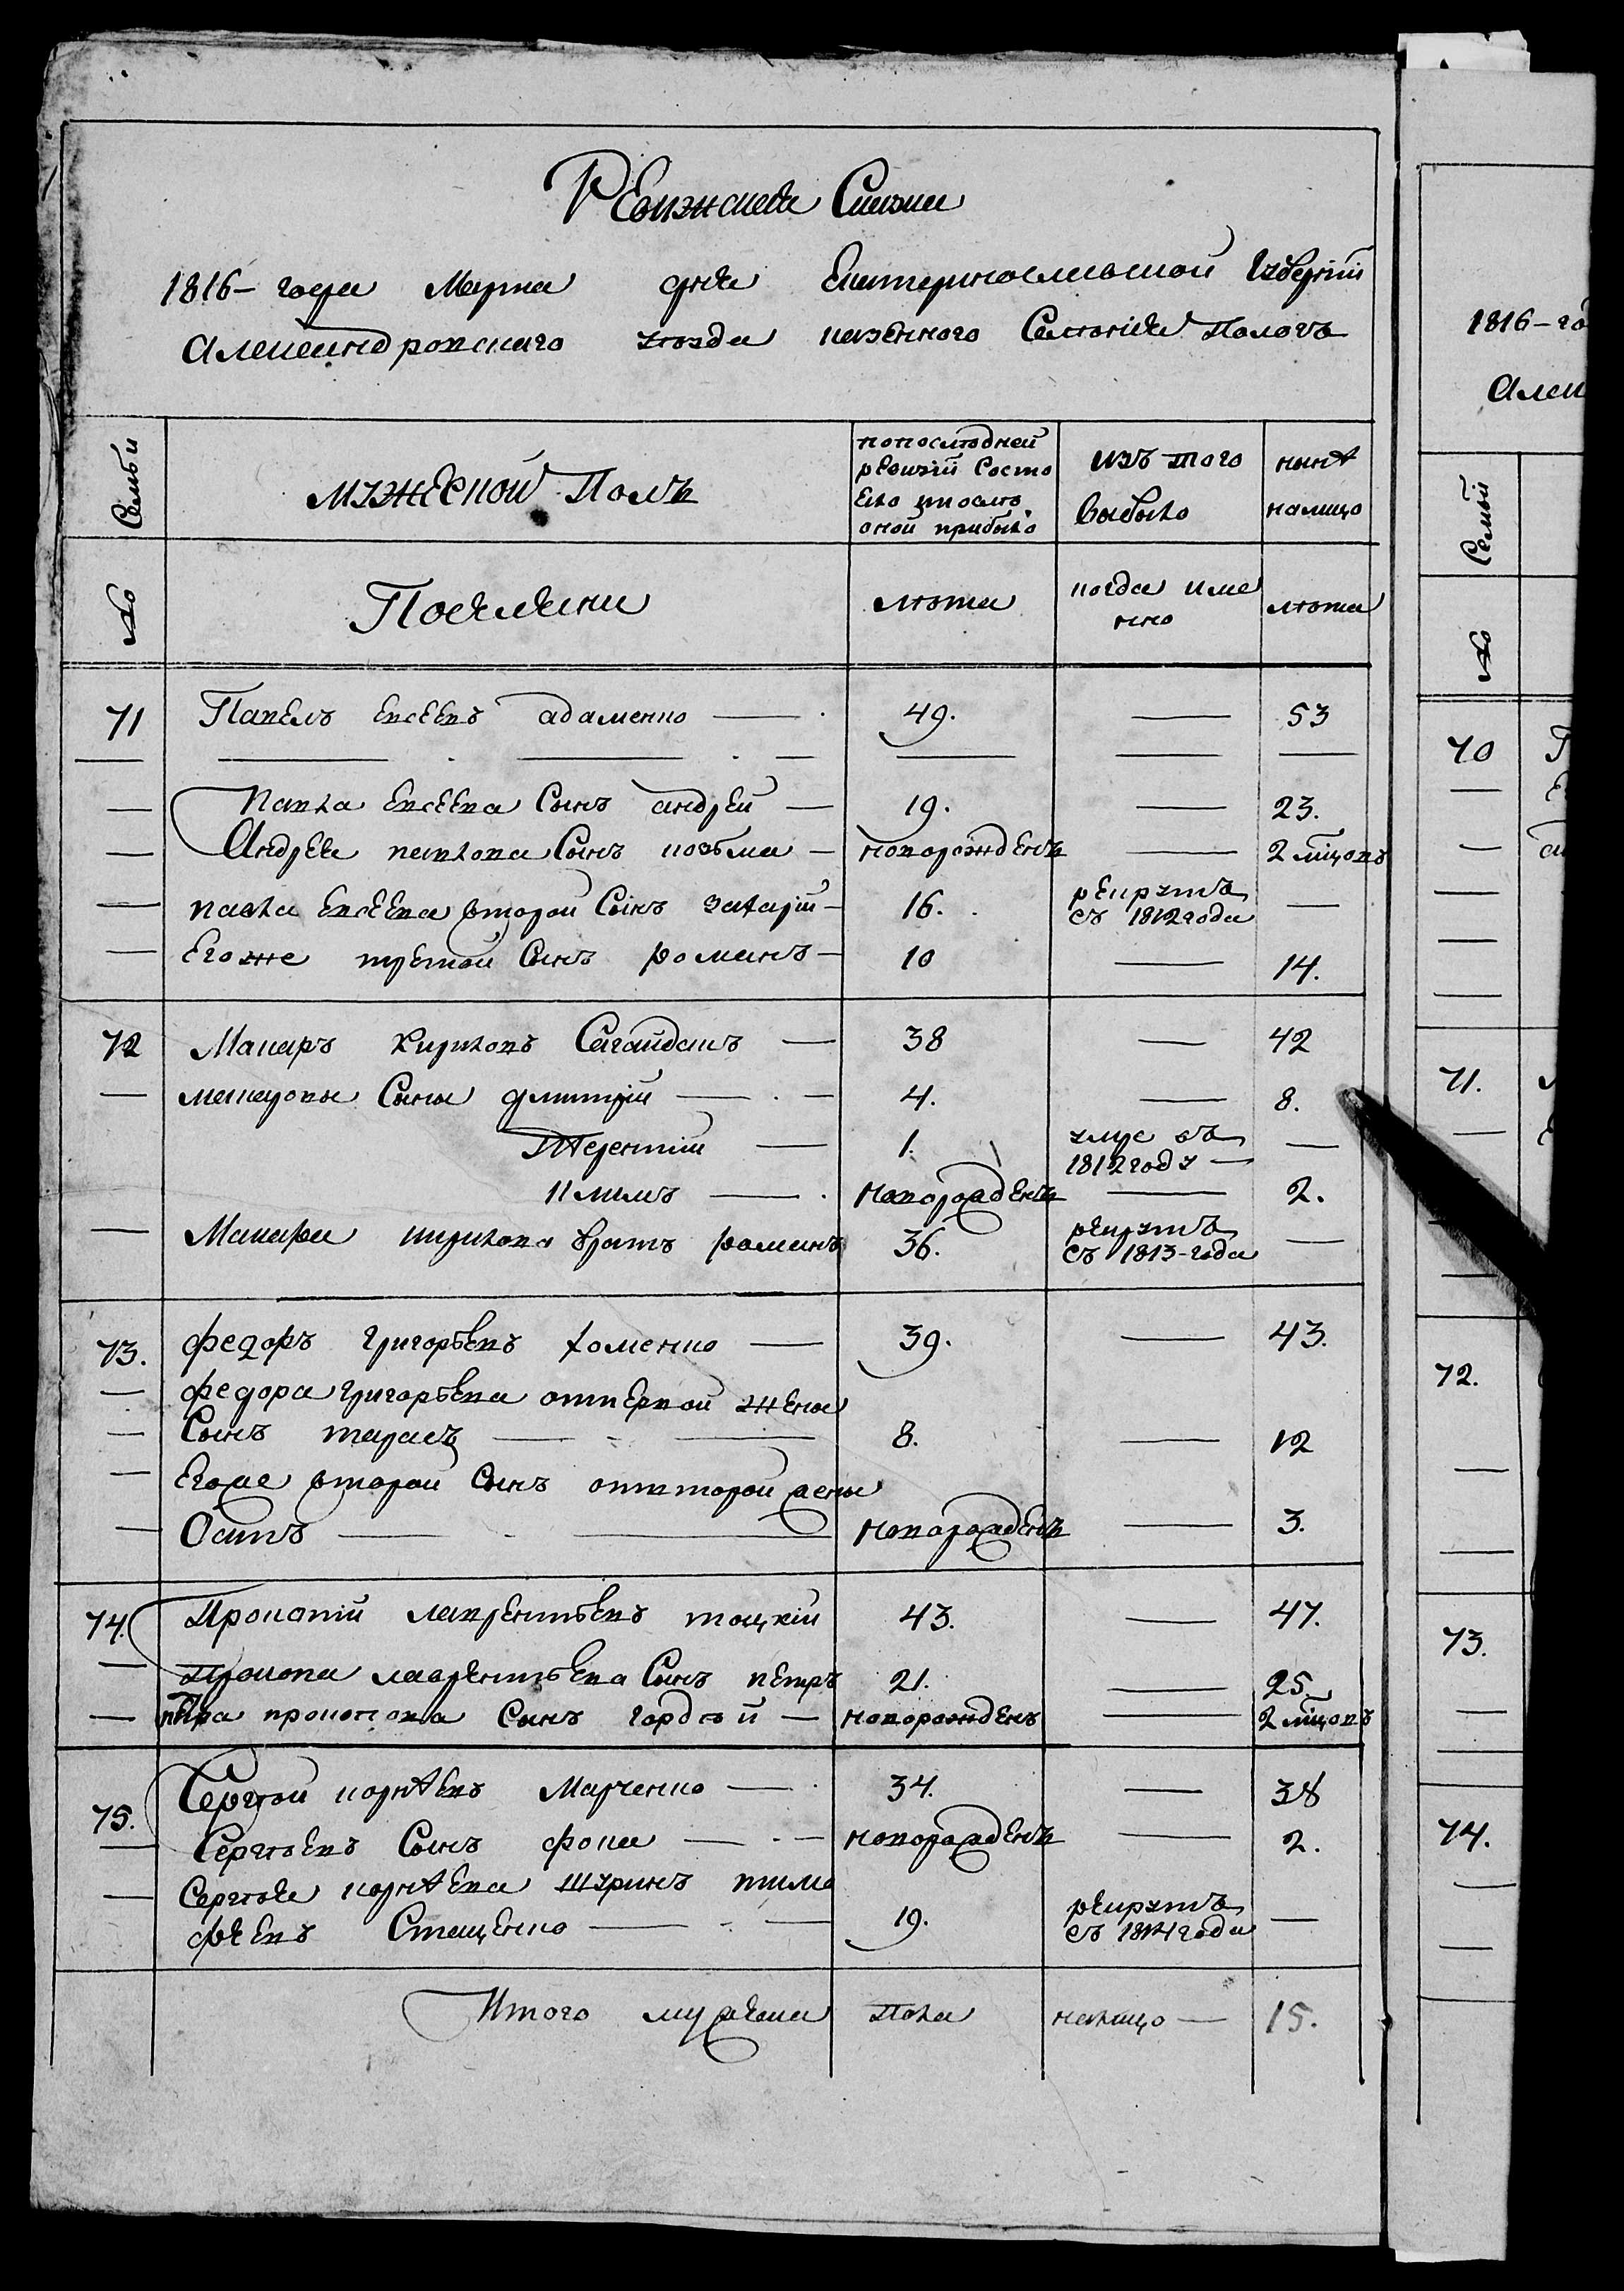 Ревизская Сказка
1816- года Марта дня Екатеринославской Губернiи
Александровскаго уезда казенного Селенiя Пологъ
Семьи
мужеской Полъ
попоследней ревизiи состояло и после оной прибыло
изъ того выбыло
ныне налицо
№
Поселяни
лета
когда имено
лета
71 Павелъ Евсеевъ адаменко 49. 53
Павла Евсеева Сынъ андрей 19. 23.
Андрея павлова Сынъ козьма новорожденъ 2 мцовъ
павла Евсеева второй Сынъ захарiй 16. рекрутъ
съ 1812 года
Егоже третой Сынъ романъ 10 14.
72 Макаръ кириловъ Сагайдакъ 38 42
макаровы Сыны дмитрiй 4. 8.
Терентiй 1. умре въ
1812 году
климъ новорожденъ 2.
Макара кирилова братъ романъ 36. рекрутъ
съ 1813-года
73. федоръ григорьевъ хоменко 39. 43.
федора григорьева отпервой жены
Сынъ тарасъ 8. 12
Егоже второй Сынъ отвторой жены
Осипъ новорожденъ 3.
74. Прокопiй лаврентьевъ тоцкiй 43. 47.
Прокопа лаврентьева Сынъ петръ 21. 25
петра прокопова Сынъ гордей новорожденъ 2 мцовъ
75. Сергей корнеевъ Марченко 34. 38
Сергеевъ Сынъ фока новорожденъ 2.
Сергея корнеева шуринъ тимо
феевъ Стаценко 19. рекрутъ
съ 1814 года
Итого мужеска пола налицо 15.
1816-го
Алек
Семьи
№
70
71.
72.
73.
74.